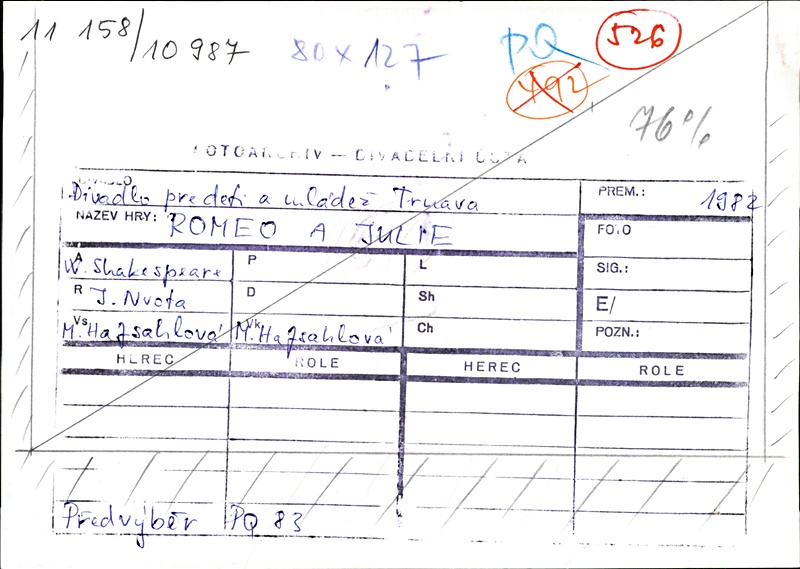 11 158/10 987 80 x 127 PQ 526
492
76%
FOTOARCHIV — DIVADELNÍ ÚSTAV
DIVADLO
Divadlo pre deti a mládež Trnava PREM.: 1982
NÁZEV HRY: ROMEO A JULIE FOTO
A W. Shakespeare P L SIG.:
R J. Nvota D Sh E/
Vs M. Hafsahlová Vk M. Hafsahlová Ch POZN.:
HEREC ROLE HEREC ROLE
Předvýběr PQ 83